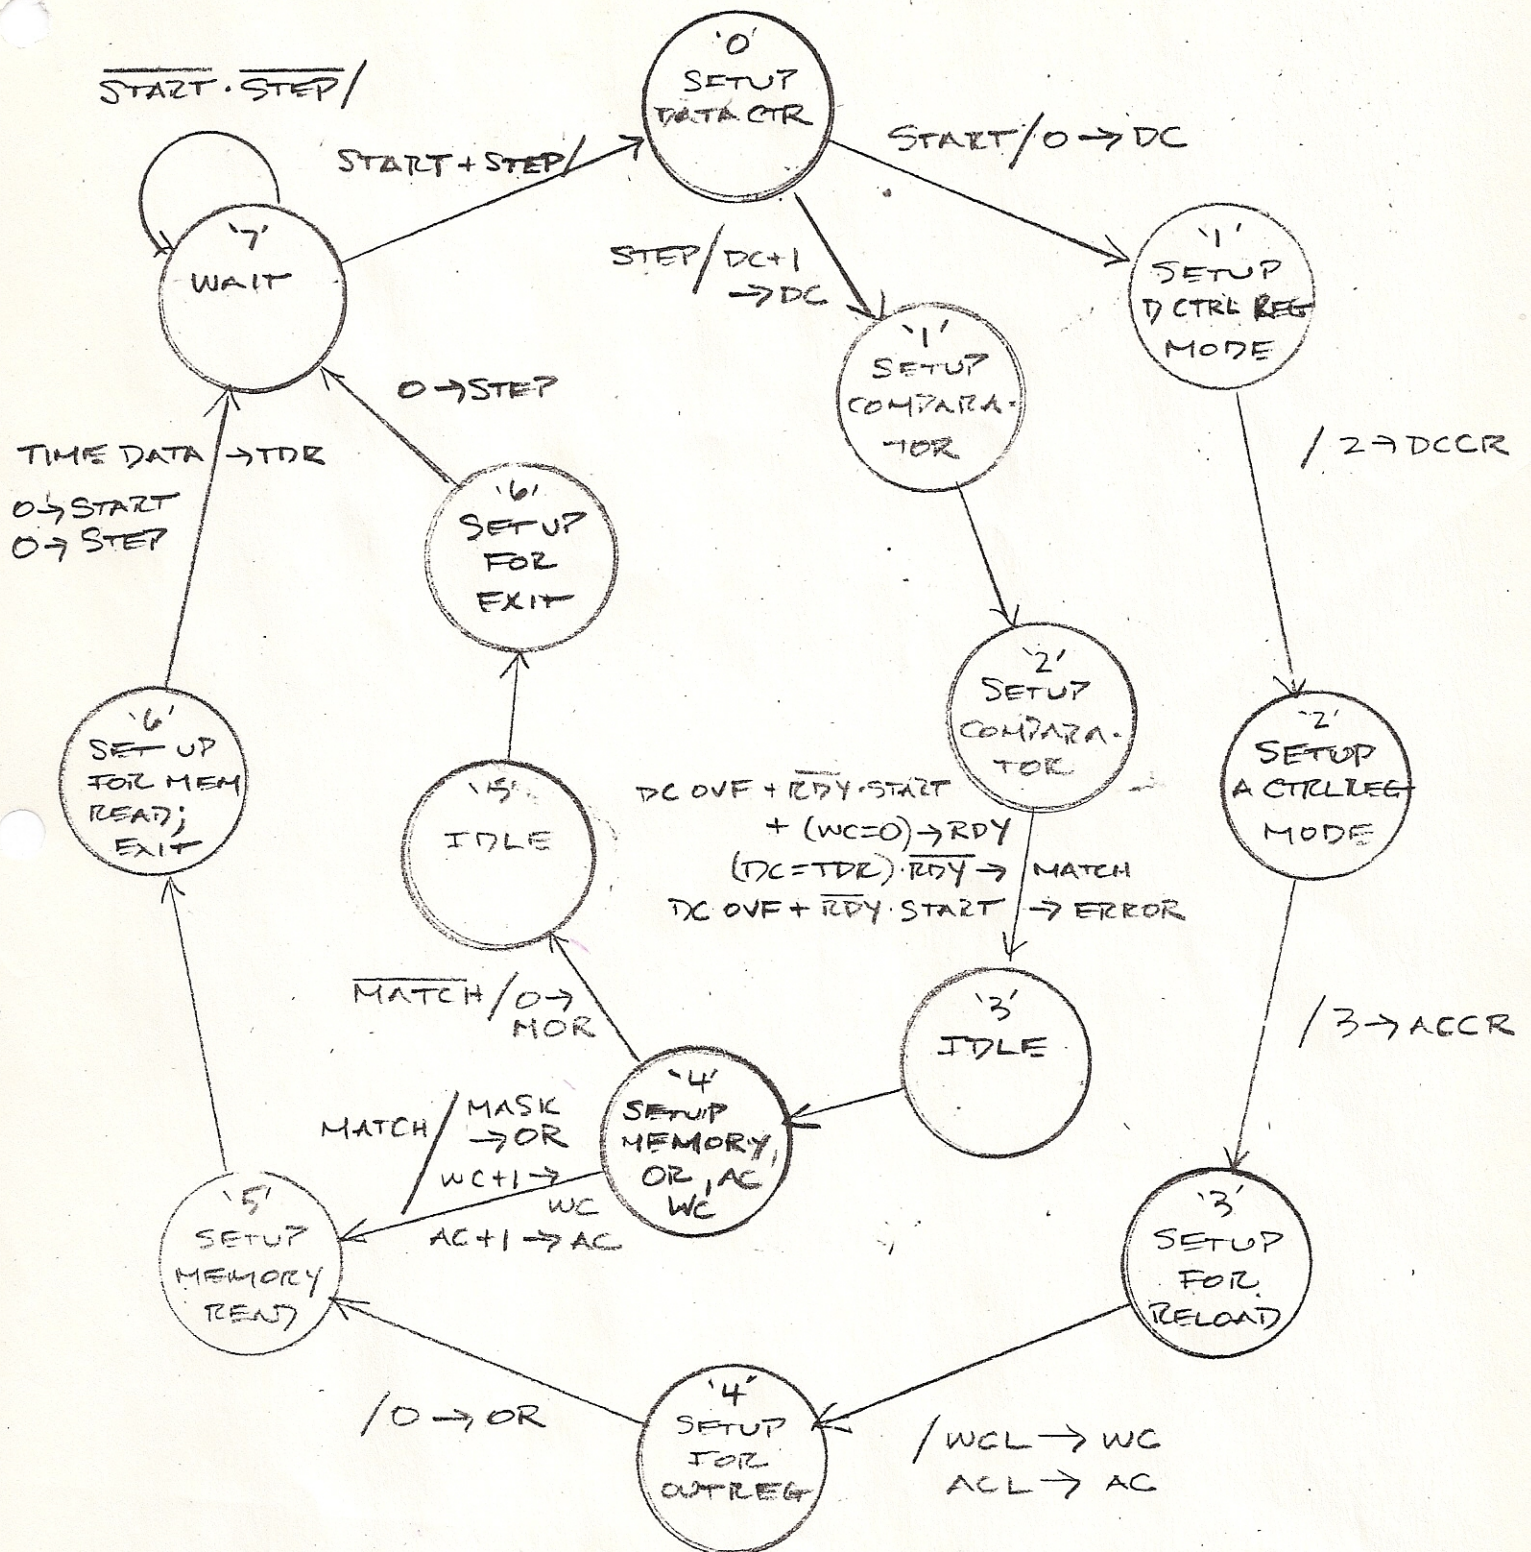 '0'
SETUP
DATA CTR
S̅T̅A̅R̅T̅·S̅T̅E̅P̅/
START+STEP/
START/0→DC
'7'
WAIT
STEP/DC+1
→DC
'1'
SETUP
D CTRL REG
MODE
'1'
SETUP
COMPARA-
TOR
0→STEP
TIME DATA→TDR
0→START
0→STEP
/2→DCCR
'6'
SETUP
FOR
EXIT
'2'
SETUP
COMPARA-
TOR
'6'
SET UP
FOR MEM
READ;
EXIT
'2'
SETUP
A CTRL REG
MODE
'5'
IDLE
DC OVF + R̅D̅Y̅·START
+ (WC=0)→RDY
(DC=TDR)·R̅D̅Y̅→ MATCH
DC OVF + R̅D̅Y̅·START → ERROR
M̅A̅T̅C̅H̅/0→
MOR
'3'
IDLE
/3→ACCR
'4'
SETUP
MEMORY,
OR, AC
WC
MATCH/MASK
→OR
WC+1→
WC
AC+1→AC
'5'
SETUP
MEMORY
READ
'3'
SETUP
FOR
RELOAD
/0→OR
'4'
SETUP
FOR
OUTREG
/WCL→WC
ACL→AC